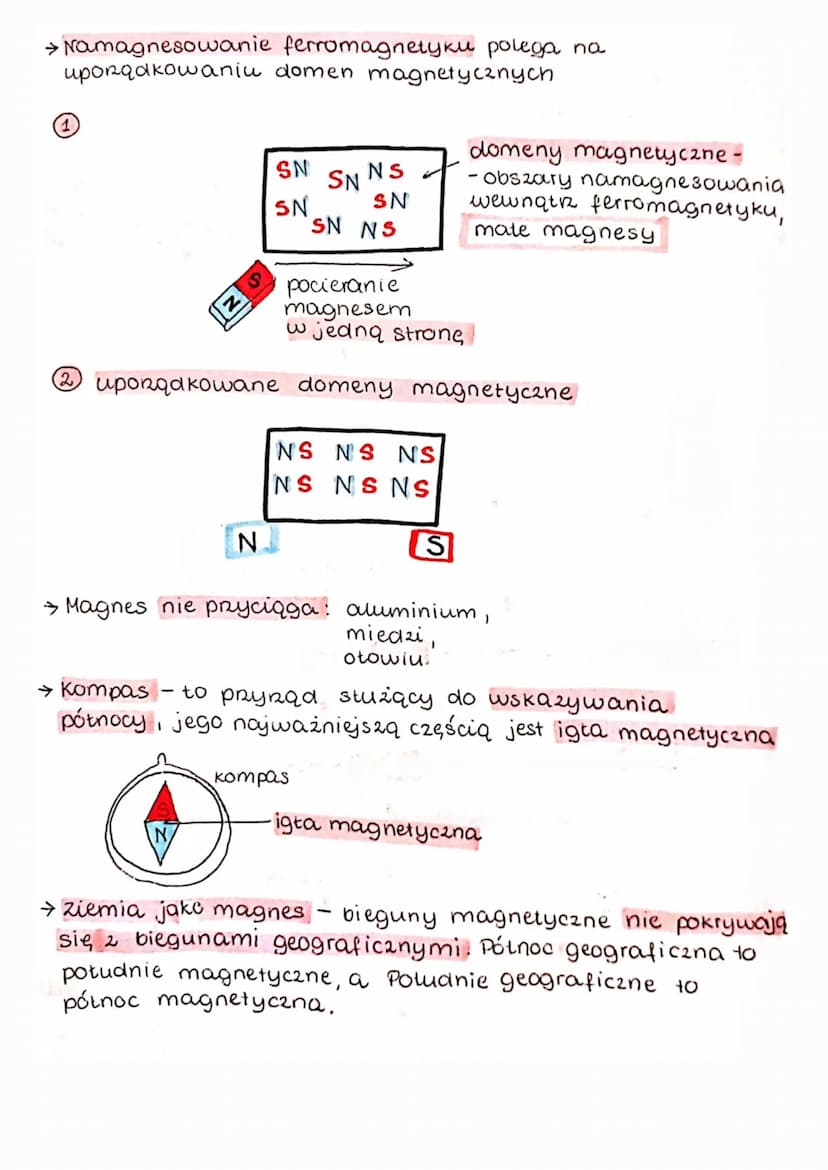 → Namagnesowanie ferromagnetyku polega na
uporządkowaniu domen magnetycznych
1
SN SN NS
SN SN
SN NS
domeny magnetyczne -
- obszary namagnesowania
wewnątrz ferromagnetyku,
małe magnesy
S
N
pocieranie
magnesem
w jedną stronę
2 uporządkowane domeny magnetyczne
NS NS NS
NS NS NS
N S
→ Magnes nie przyciąga: aluminium,
miedzi,
ołowiu.
→ Kompas - to przyrząd służący do wskazywania
północy, jego najważniejszą częścią jest igła magnetyczna
kompas
S
N
igła magnetyczna
→ Ziemia jako magnes - bieguny magnetyczne nie pokrywają
się z biegunami geograficznymi. Północ geograficzna to
południe magnetyczne, a Południe geograficzne to
północ magnetyczna.